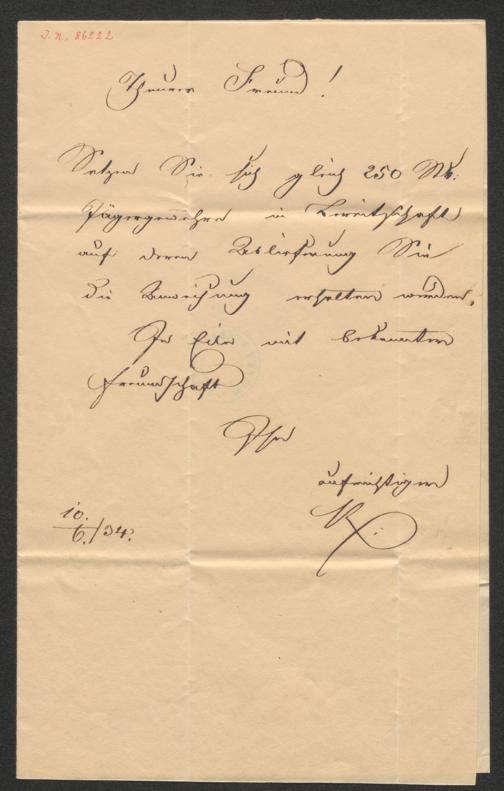 I.N. 86222
Theurer Freund!
Setzen Sie sich gleich 250 Stk:
Jägergewehre in Bereitschaft
auf deren Ablieferung Sie
die Anweisung erhalten werden.
In Eile mit bekannter
Freundschaft
Ihr
aufrichtiger
10.
6./34.